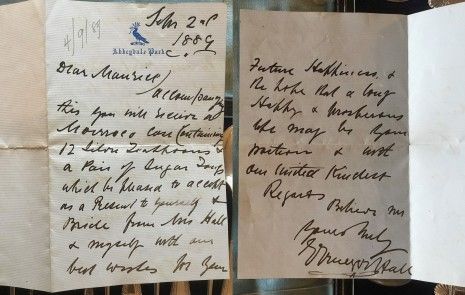 4/9/89
Septr 2nd
1889
Abbeydale Park
Dear Maurice,
Accompanying
this you will receive a
Morocco Case Containing
12 Silver Teaspoons &
a Pair of Sugar Tongs
which be pleased to accept
as a Present to yourself &
Bride from Mrs Hall
& myself with our
best wishes for your
Future Happiness &
the hope that a long
Happy & Prosperous
life may be your
portion & with
our United Kindest
Regards
Believe me
Yours truly
Hall